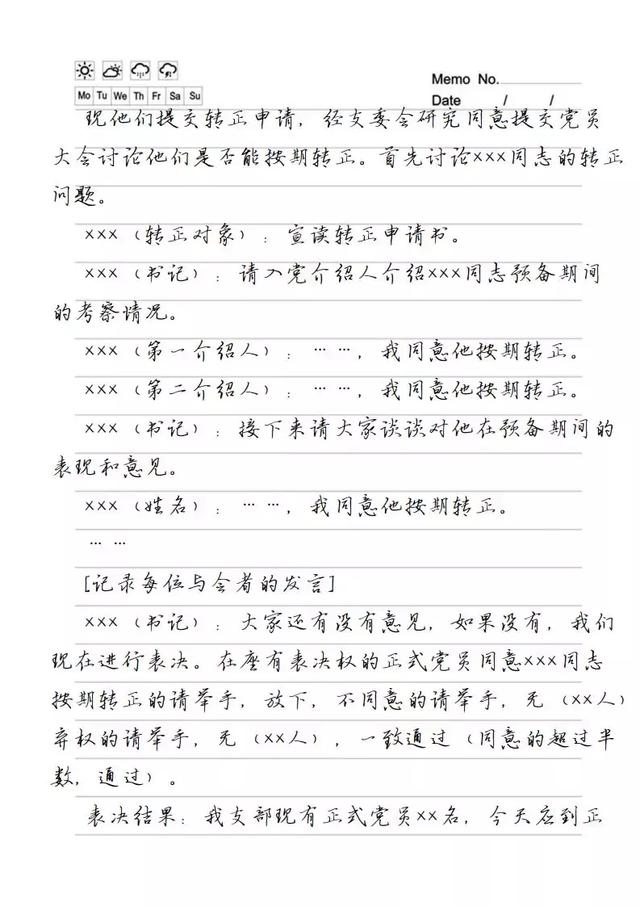 Memo No.
Mo Tu We Th Fr Sa Su
Date / /
现他们提交转正申请，经支委会研究同意提交党员
大会讨论他们是否能按期转正。首先讨论×××同志的转正
问题。
×××（转正对象）：宣读转正申请书。
×××（书记）：请入党介绍人介绍×××同志预备期间
的考察情况。
×××（第一介绍人）：……，我同意他按期转正。
×××（第二介绍人）：……，我同意他按期转正。
×××（书记）：接下来请大家谈谈对他在预备期间的
表现和意见。
×××（姓名）：……，我同意他按期转正。
……
[记录每位与会者的发言]
×××（书记）：大家还有没有意见，如果没有，我们
现在进行表决。在座有表决权的正式党员同意×××同志
按期转正的请举手，放下，不同意的请举手，无（××人）
弃权的请举手，无（××人），一致通过（同意的超过半
数，通过）。
表决结果：我支部现有正式党员××名，今天应到正